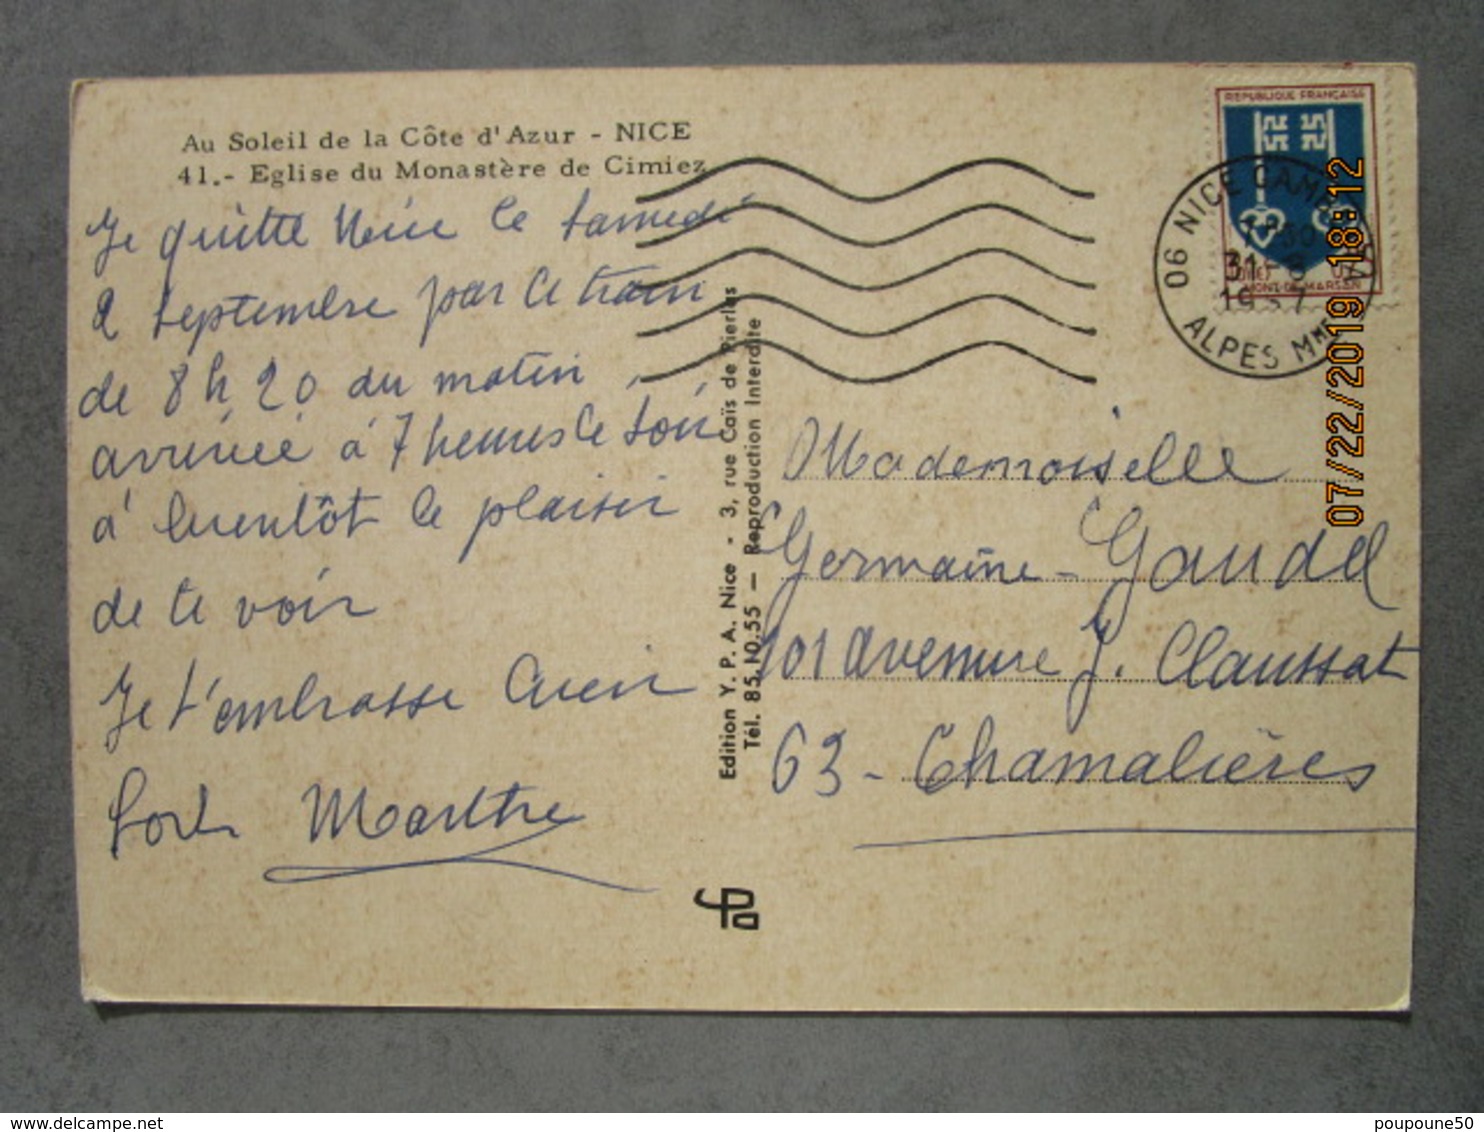 Au Soleil de la Côte d'Azur - NICE
41.- Eglise du Monastère de Cimiez
Je quitte Nice le Samedi
2 Septembre par le train
de 8 h 20 du matin
arrivée à 7 heures le soir
à bientôt le plaisir
de te voir
Je t'embrasse bien
fort Marthe
Edition Y. P. A. Nice - 3, rue Caïs de Pierlas
Tél. 85.10.55 — Reproduction Interdite
REPUBLIQUE FRANÇAISE
MONT-DE-MARSAN
06 NICE
31 - 8
ALPES Mmes
07/22/2019 18:12
Mademoiselle
Germaine Gaudel
101 avenue J. Claussat
63 - Chamalières
poupoune50